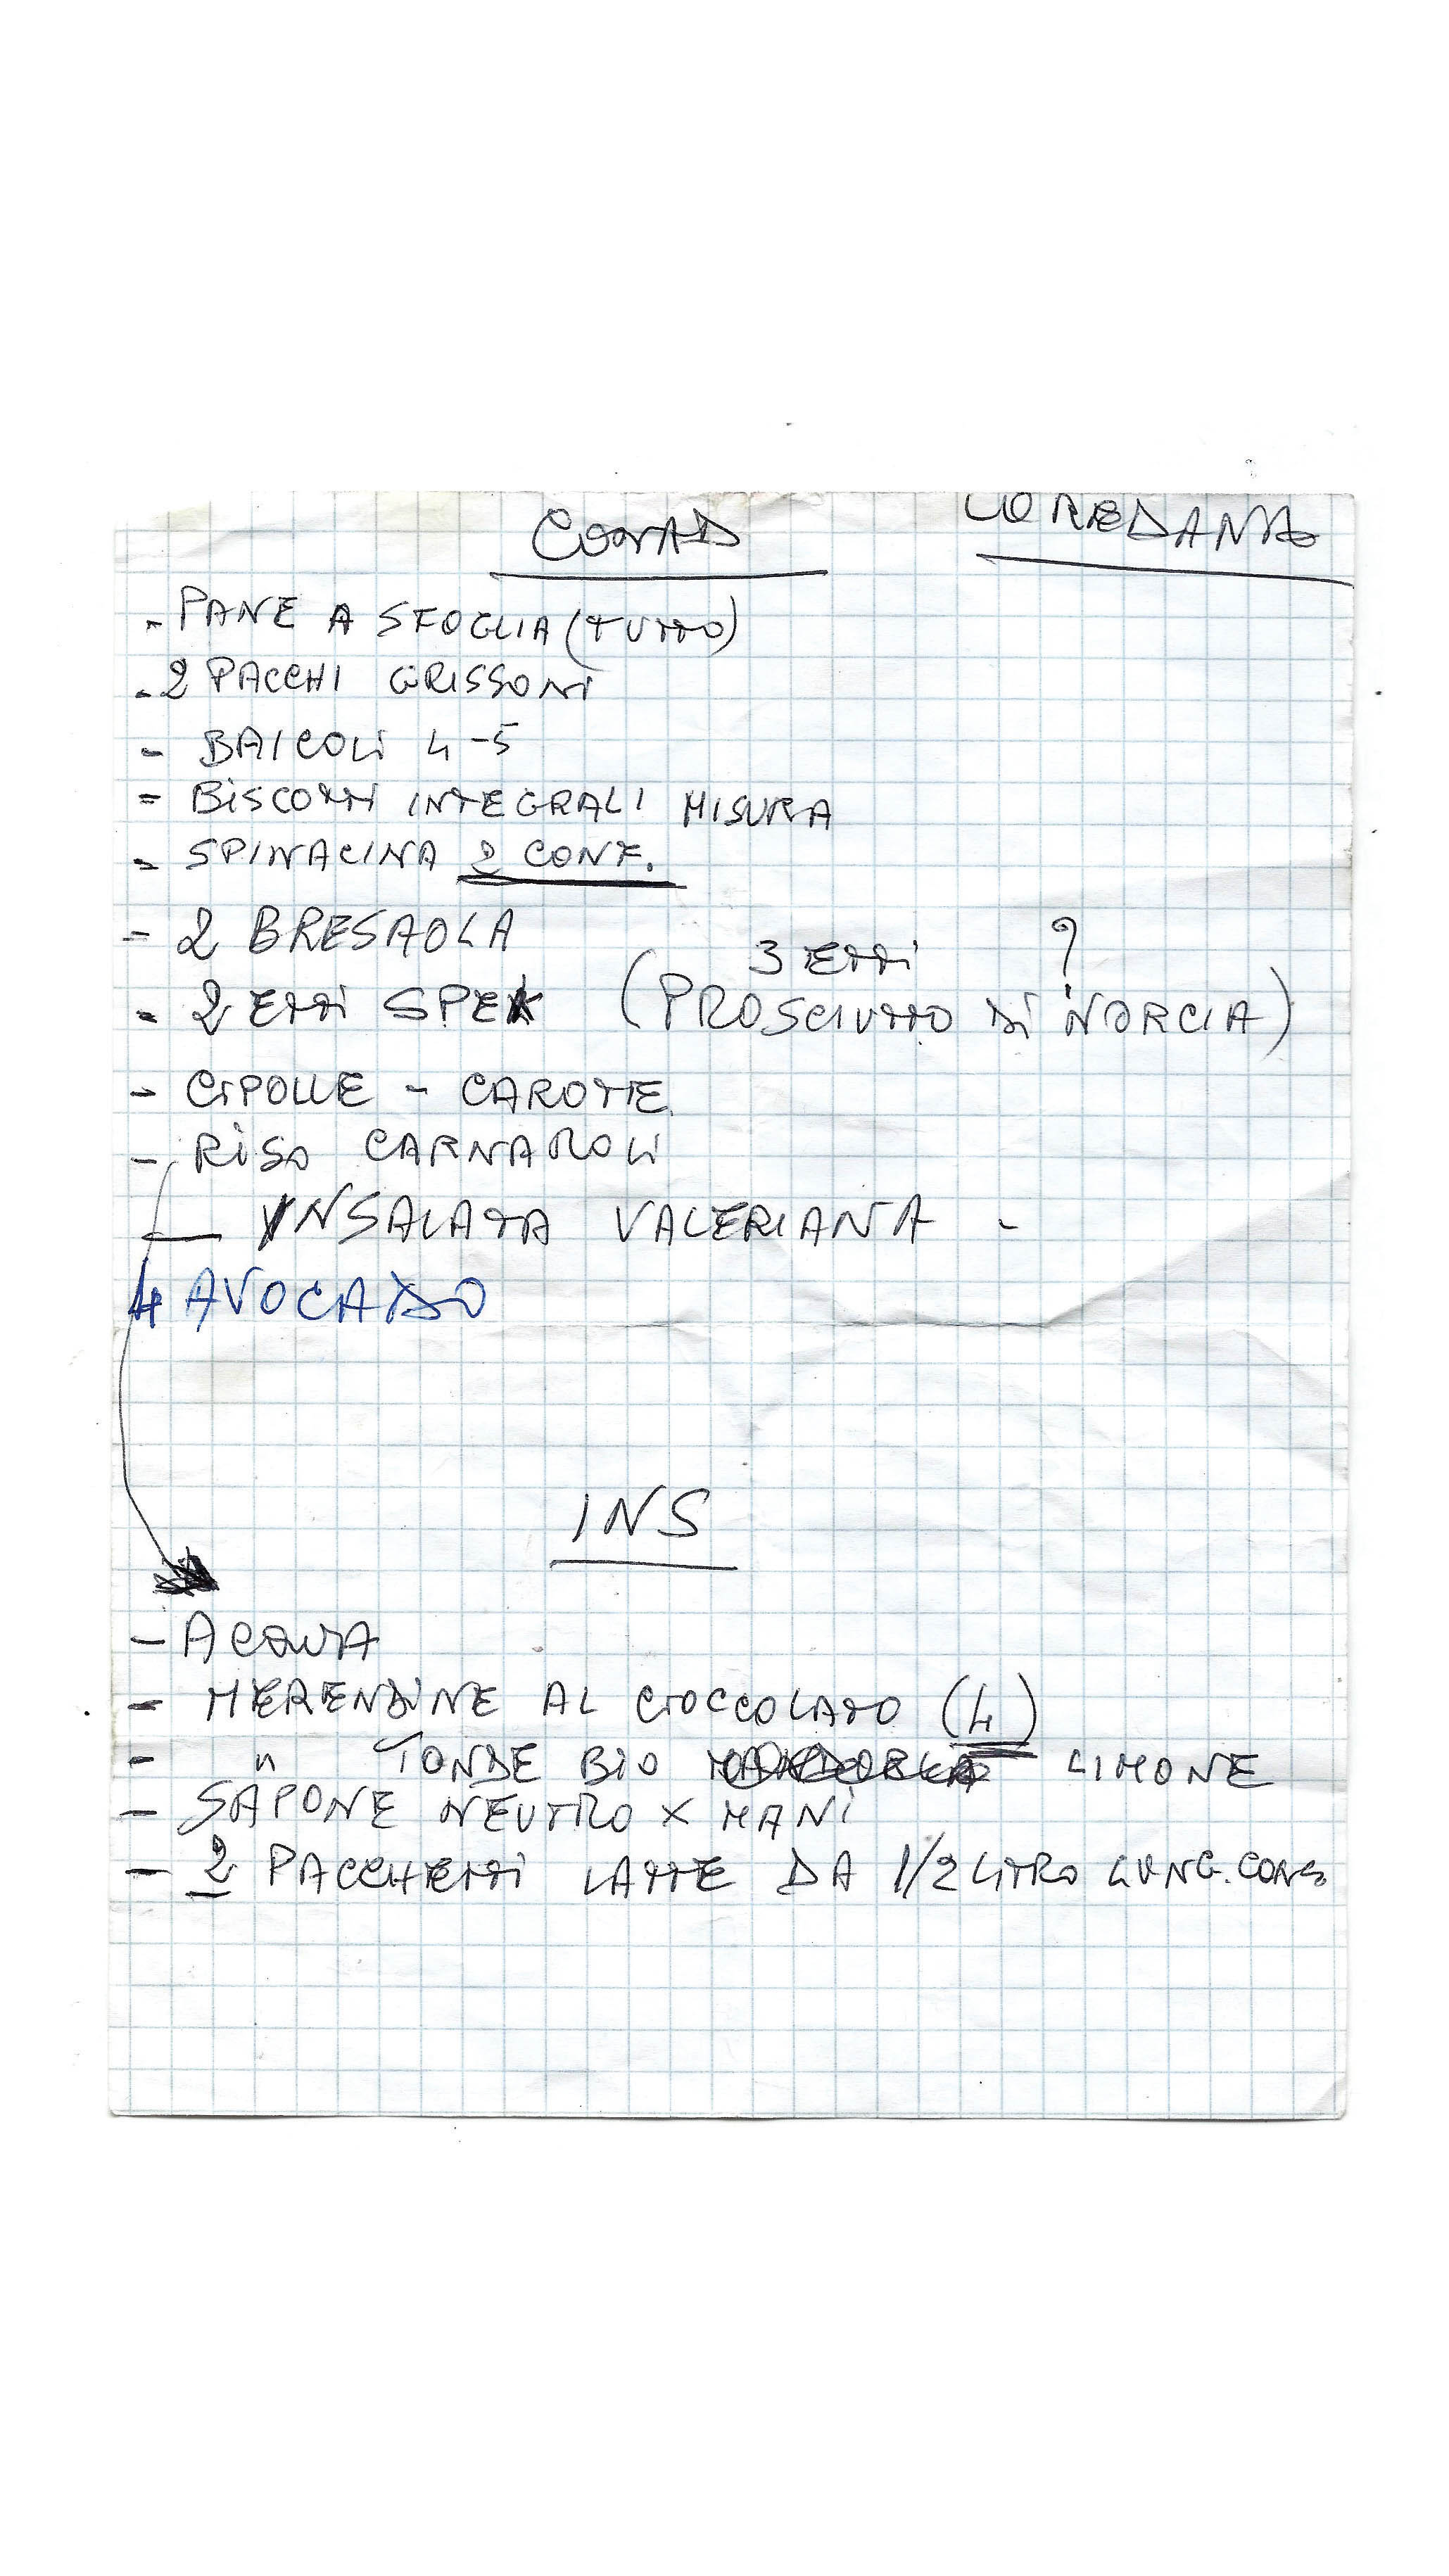 CONAD
LOREDANA
- PANE A SFOGLIA (TUTTO)
- 2 PACCHI GRISSONI
- BAICOLI 4-5
= BISCOTTI INTEGRALI MISURA
= SPINACINA 2 CONF.
- 2 BRESAOLA
3 ETTI ?
- 2 ETTI SPEK (PROSCIUTTO DI NORCIA)
- CIPOLLE - CAROTE
- RISO CARNAROLI
— INSALATA VALERIANA -
4 AVOCADO
INS
- ACQUA
- MERENDINE AL CIOCCOLATO (4)
- " TONDE BIO LIMONE
- SAPONE NEUTRO X MANI
- 2 PACCHETTI LATTE DA 1/2 LITRO LUNG. CONS.